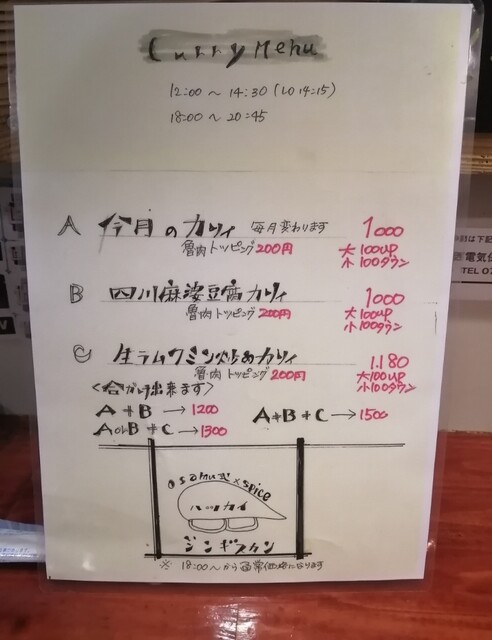 Curry Menu
12:00 〜 14:30 (LO 14:15)
18:00 〜 20:45
A 今月のカリィ 毎月変わります 1000
魯肉トッピング 200円 大 100up
小 100ダウン
B 四川麻婆豆腐カリィ 1000
魯肉トッピング 200円 大 100up
小 100ダウン
C 生ラムクミン炒めカリィ 1.180
魯肉トッピング 200円 大 100up
小 100ダウン
<合がけ出来ます>
A + B → 1200
A or B + C → 1300
A+B+C → 1500
osamu式×spice
ハッカイ
ジンギスカン
※ 18:00〜から通常価格になります
TEL 07